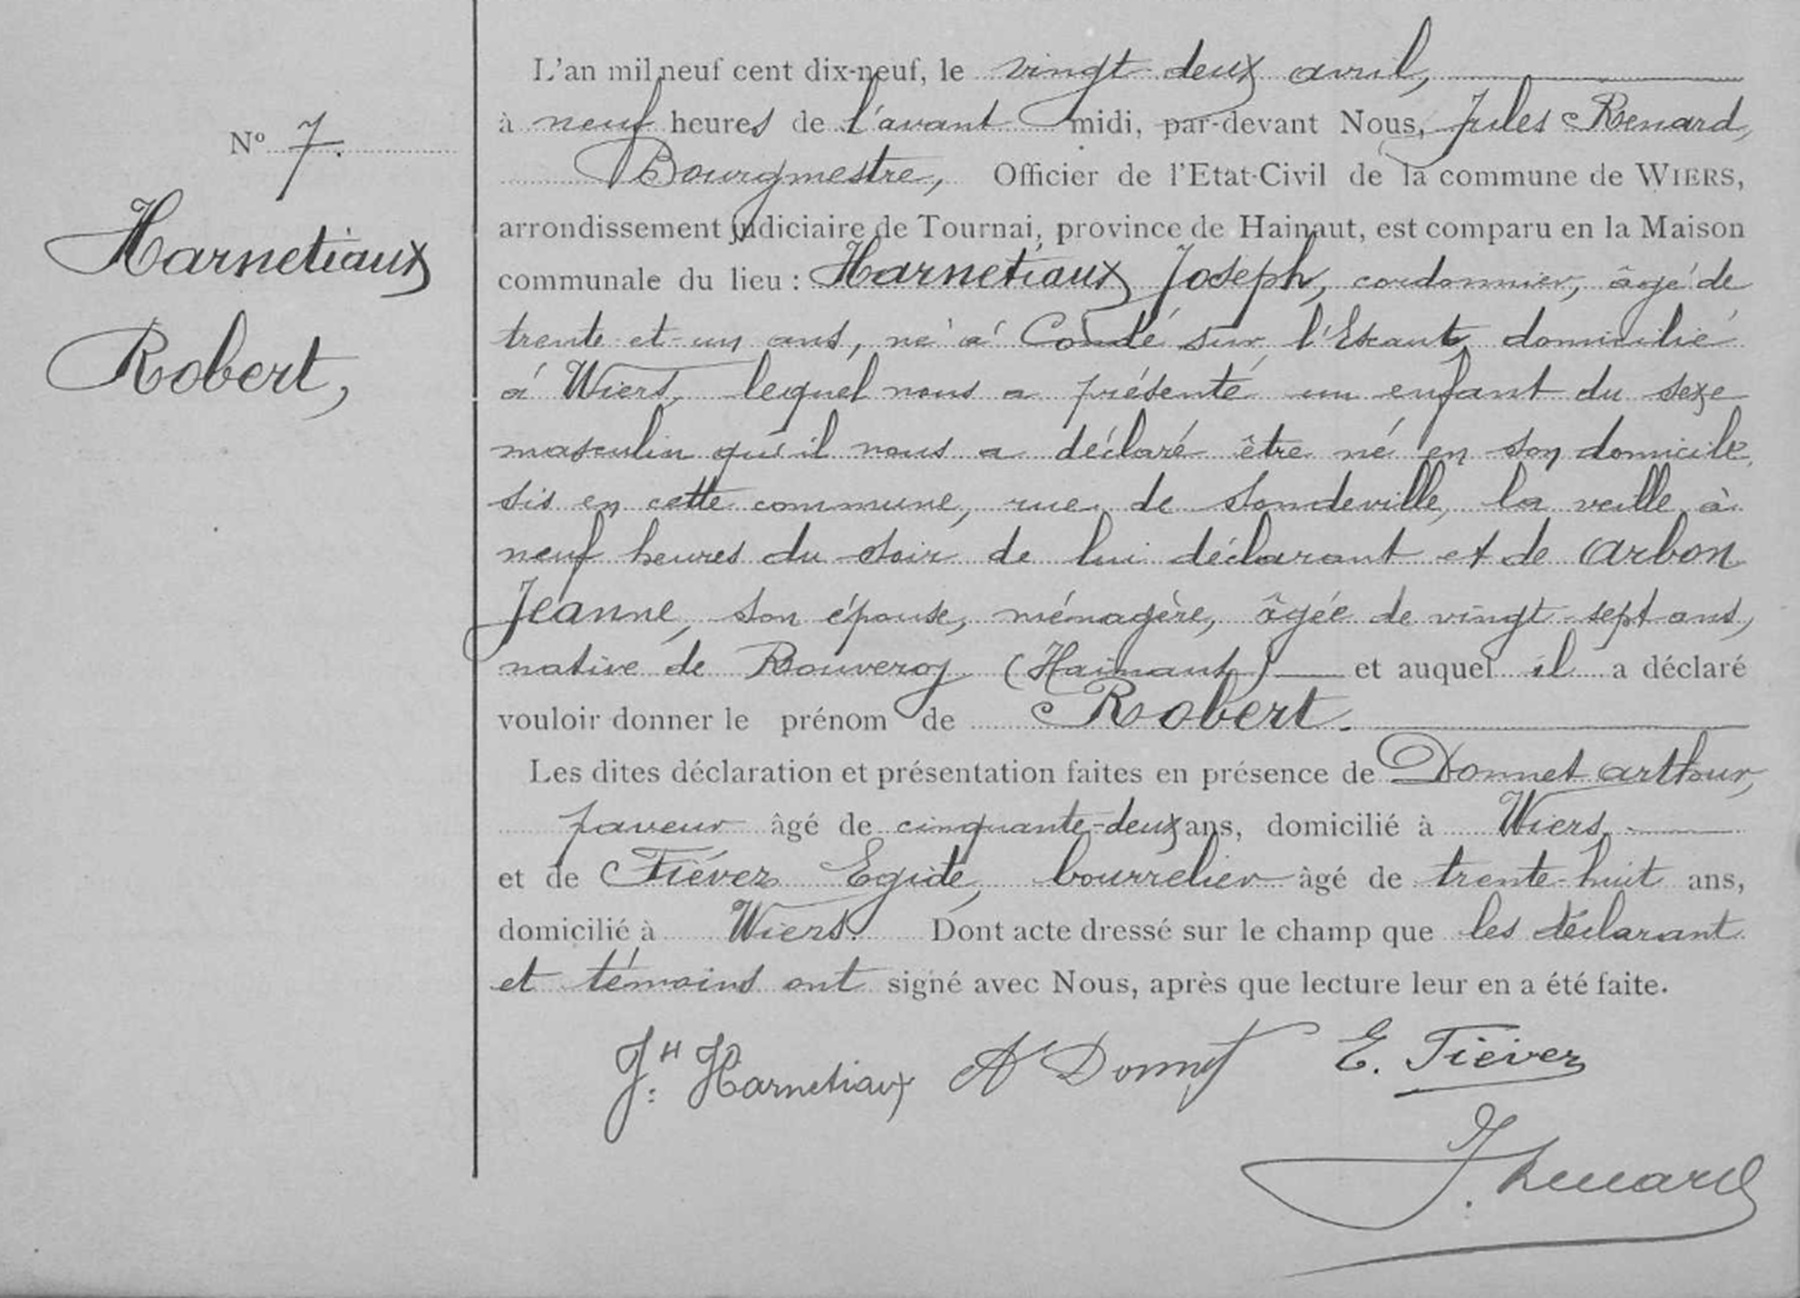 N° 7.
Harnetiaux
Robert,
L'an mil neuf cent dix-neuf, le vingt-deux avril,
à neuf heures de l'avant midi, par-devant Nous, Jules Renard,
Bourgmestre, Officier de l'Etat-Civil de la commune de WIERS,
arrondissement judiciaire de Tournai, province de Hainaut, est comparu en la Maison
communale du lieu : Harnetiaux Joseph, cordonnier, âgé de
trente-et-un ans, né à Condé sur l'Escaut, domicilié
à Wiers, lequel nous a présenté un enfant du sexe
masculin qu'il nous a déclaré être né en son domicile
sis en cette commune, rue de Sondeville, la veille à
neuf heures du soir de lui déclarant et de Arbon
Jeanne, son épouse, ménagère, âgée de vingt-sept ans,
native de Rouveroy (Hainaut) et auquel il a déclaré
vouloir donner le prénom de Robert.
Les dites déclaration et présentation faites en présence de Donnet Arthur,
paveur âgé de cinquante-deux ans, domicilié à Wiers,
et de Fiévez Egide, bourrelier âgé de trente-huit ans,
domicilié à Wiers. Dont acte dressé sur le champ que les déclarant
et témoins ont signé avec Nous, après que lecture leur en a été faite.
J.H Harnetiaux A Donnet E. Fiévez
J. Renard